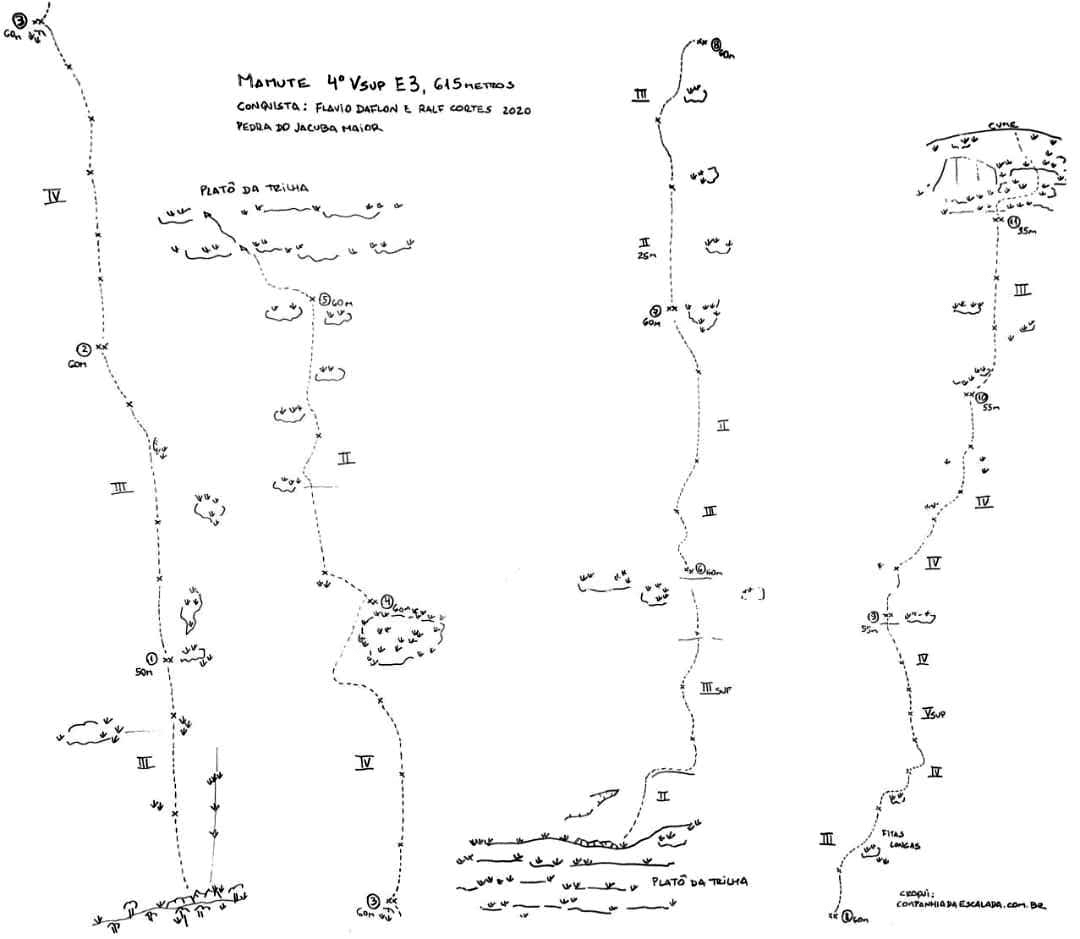 MAMUTE 4º VSUP E3, 615 METROS
CONQUISTA: FLAVIO DAFLON E RALF CORTES 2020
PEDRA DO JACUBA MAIOR
3
60m
IV
2
60m
III
1
50m
III
PLATÔ DA TRILHA
5 60m
II
4
60m
IV
3
60m
8
60m
III
II
25m
7
60m
II
III
6 60m
III SUP
II
PLATÔ DA TRILHA
CUME
11
35m
III
10
55m
IV
IV
9
55m
IV
VSUP
IV
FITAS
LONGAS
III
8 60m
CROQUI:
COMPANHIADAESCALADA.COM.BR